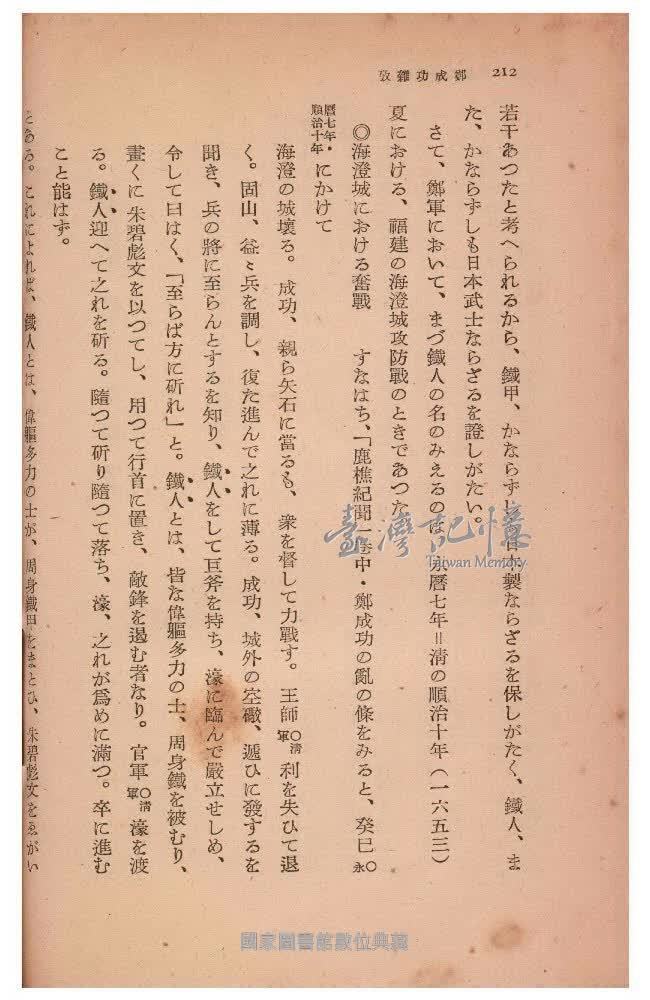 212 鄭成功雜攷
若干あつたと考へられるから、鐵甲、かならずしも日本製ならざるを保しがたく、鐵人、ま
た、かならずしも日本武士ならざるを證しがたい。
さて、鄭軍において、まづ鐵人の名のみえるのは、永曆七年＝淸の順治十年（一六五三）
夏における、福建の海澄城攻防戰のときであつた
◎海澄城における奮戰　すなはち、「鹿樵紀聞」卷中・鄭成功の亂の條をみると、癸巳〇永
曆七年・順治十年にかけて
海澄の城壞る。成功、親ら矢石に當るも、衆を督して力戰す。王師〇淸軍利を失ひて退
く。固山、益〻兵を調し、復た進んで之れに薄る。成功、城外の空礮、遞ひに發するを
聞き、兵の將に至らんとするを知り、鐵人をして巨斧を持ち、濠に臨んで嚴立せしめ、
令して曰はく、「至らば方に斫れ」と。鐵人とは、皆な偉軀多力の士、周身鐵を被むり、
畫くに朱碧彪文を以つてし、用つて行首に置き、敵鋒を遏む者なり。官軍〇淸軍濠を渡
る。鐵人迎へて之れを斫る。隨つて斫り隨つて落ち、濠、之れが爲めに滿つ。卒に進む
こと能はず。
とある。これによれば、鐵人とは、偉軀多力の士が、周身鐵甲をまとひ、朱碧彪文をゑがい
臺灣記憶
Taiwan Memory
國家圖書館數位典藏